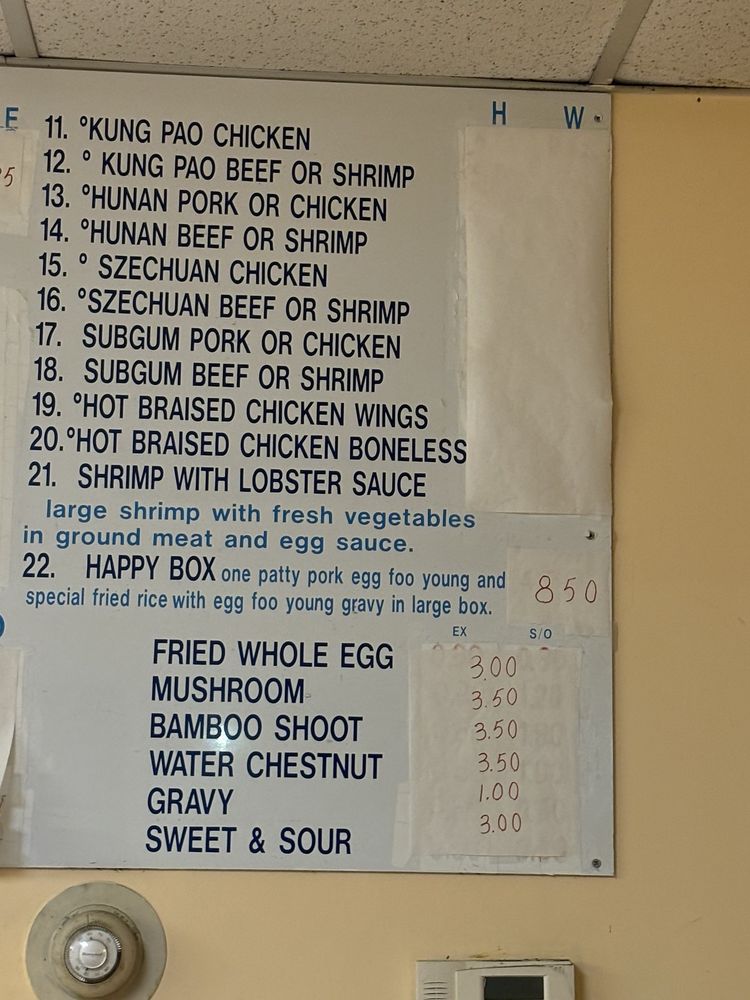 E
H W
5
11. °KUNG PAO CHICKEN
12. ° KUNG PAO BEEF OR SHRIMP
13. °HUNAN PORK OR CHICKEN
14. °HUNAN BEEF OR SHRIMP
15. ° SZECHUAN CHICKEN
16. °SZECHUAN BEEF OR SHRIMP
17. SUBGUM PORK OR CHICKEN
18. SUBGUM BEEF OR SHRIMP
19. °HOT BRAISED CHICKEN WINGS
20.°HOT BRAISED CHICKEN BONELESS
21. SHRIMP WITH LOBSTER SAUCE
large shrimp with fresh vegetables
in ground meat and egg sauce.
22. HAPPY BOX one patty pork egg foo young and
special fried rice with egg foo young gravy in large box.
850
EX S/O
FRIED WHOLE EGG 3.00
MUSHROOM 3.50
BAMBOO SHOOT 3.50
WATER CHESTNUT 3.50
GRAVY 1.00
SWEET & SOUR 3.00